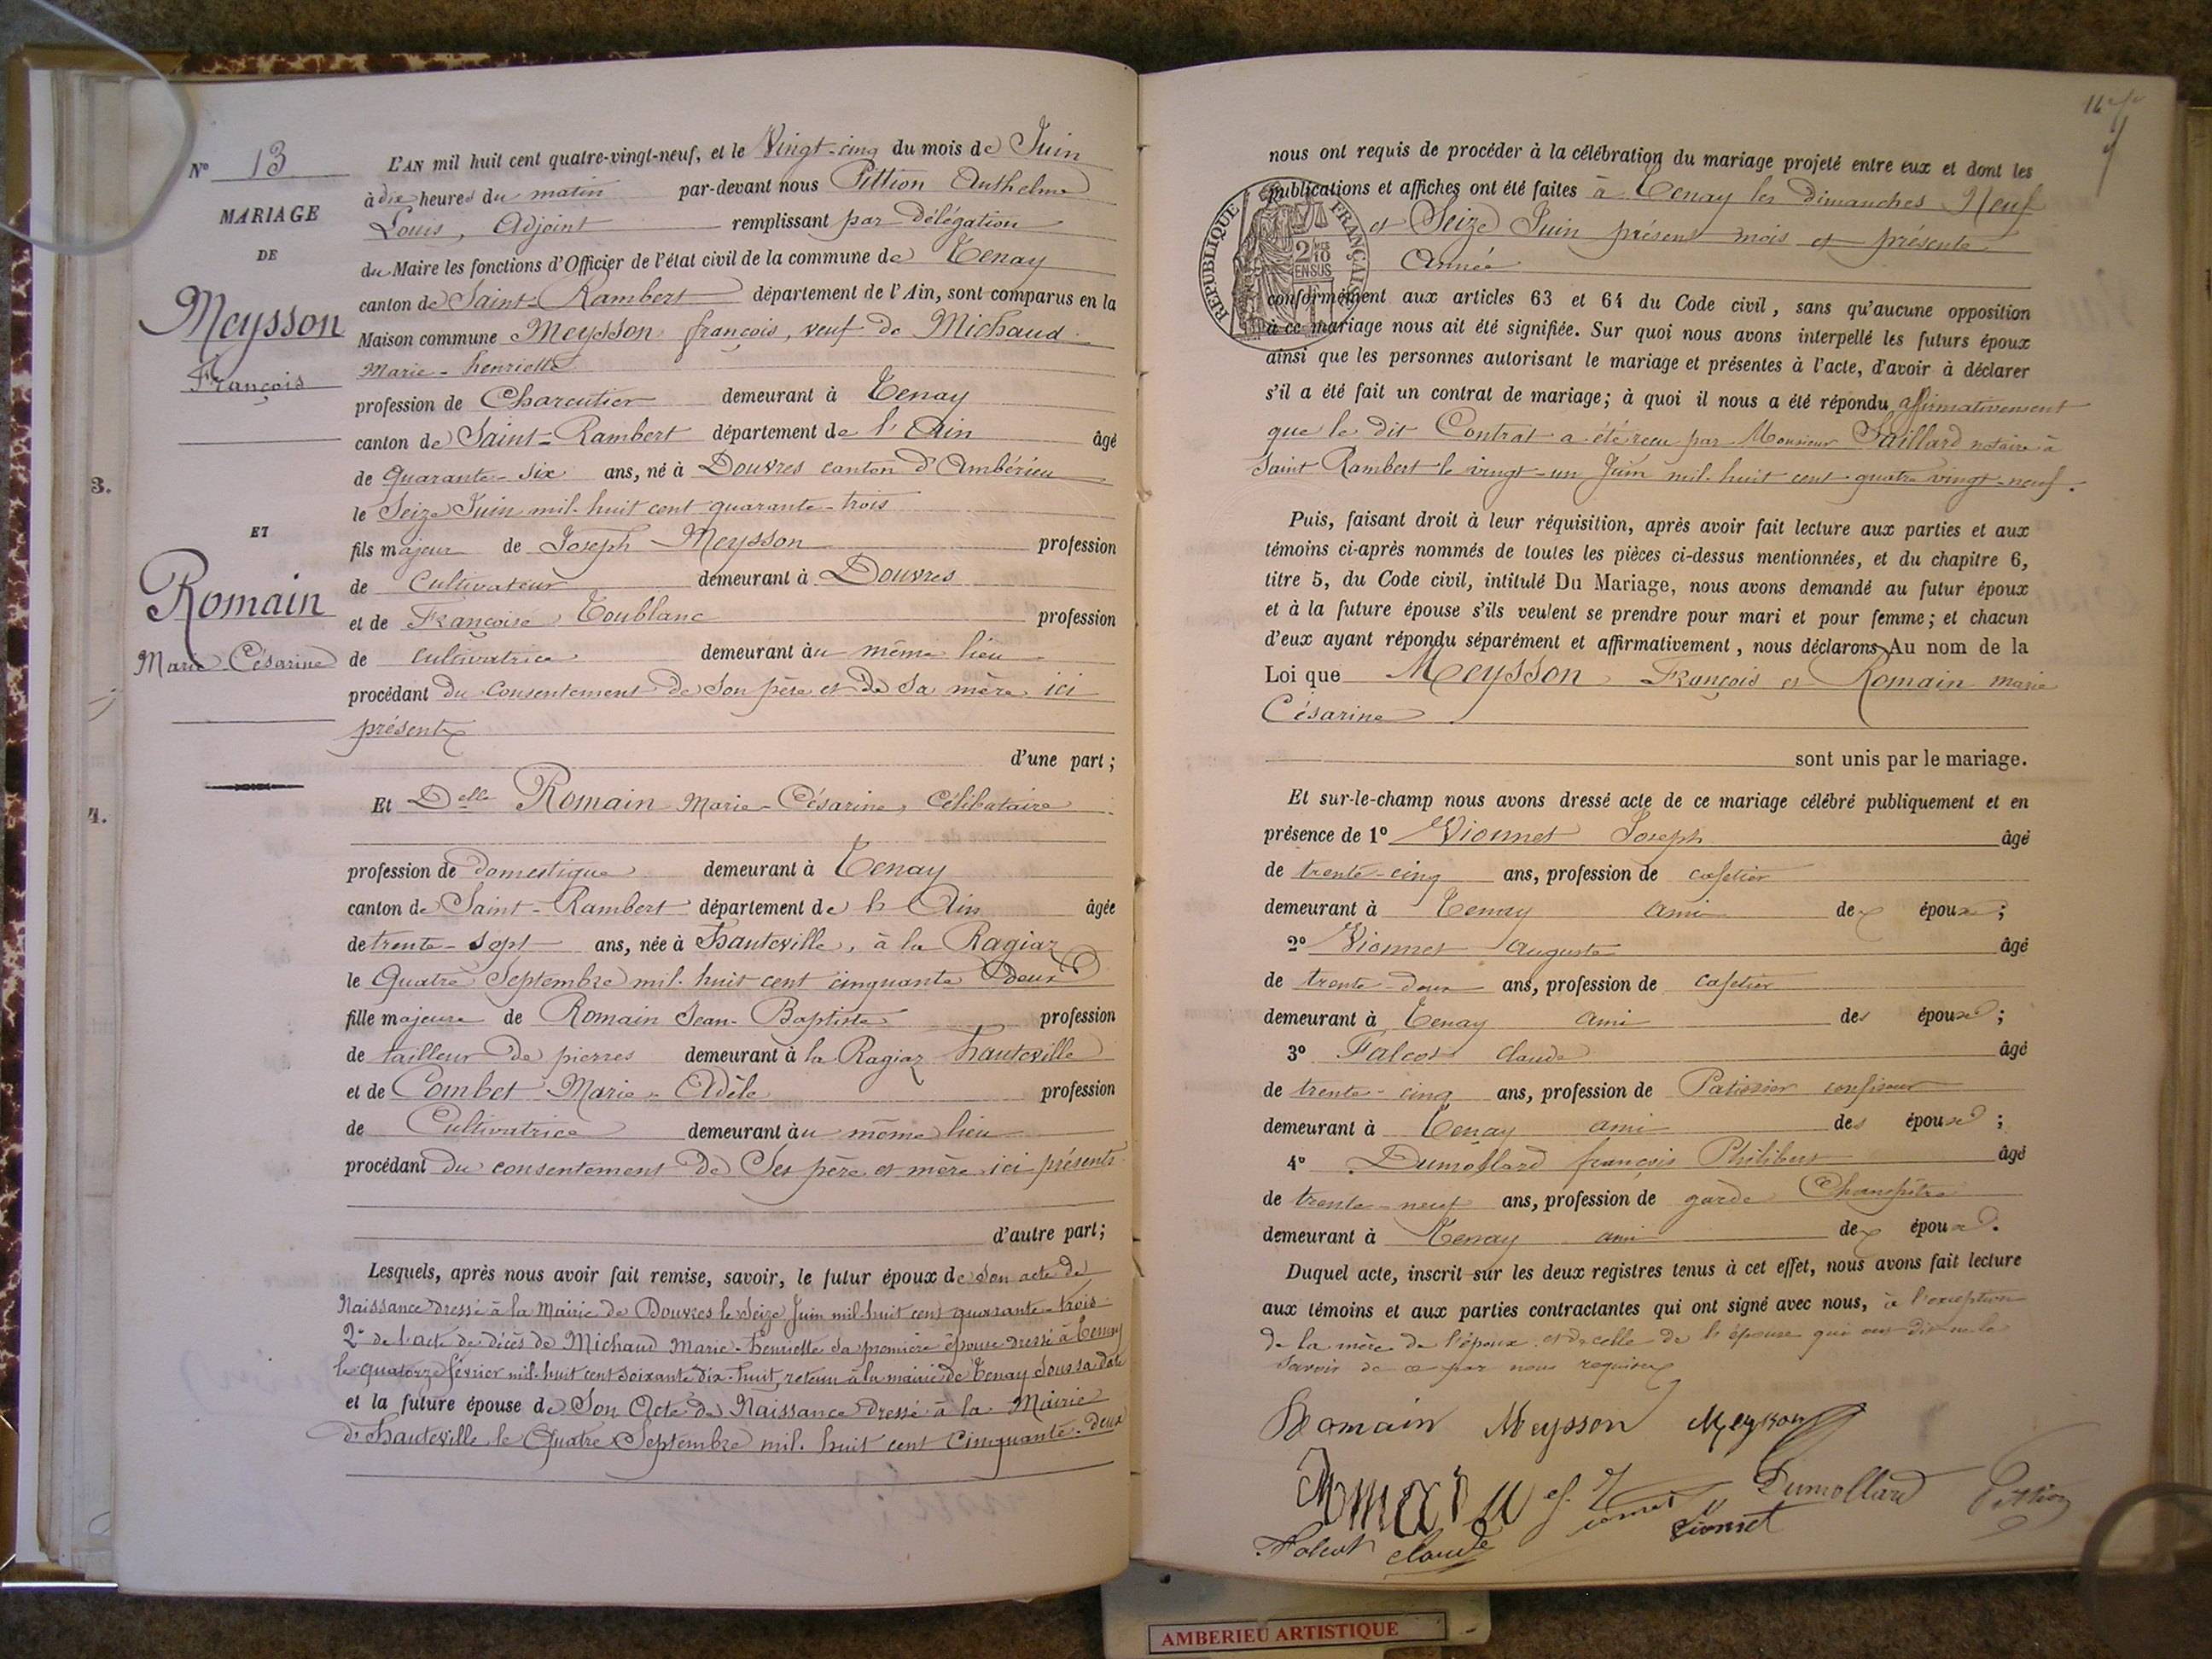 N° 13
MARIAGE
DE
Meysson
François
ET
Romain
Marie Césarine
3.
4.
L'AN mil huit cent quatre-vingt-neuf, et le Vingt-cinq du mois de Juin
à dix heures du matin par-devant nous Pittion Anthelme
Louis, Adjoint remplissant par délégation
du Maire les fonctions d'Officier de l'état civil de la commune de Tenay
canton de Saint-Rambert département de l'Ain, sont comparus en la
Maison commune Meysson françois, veuf de Michaud
Marie-henriette
profession de Charcutier demeurant à Tenay
canton de Saint-Rambert département de l'Ain âgé
de Quarante-six ans, né à Douvres canton d'Ambérieu
le Seize Juin mil-huit cent quarante-trois
fils majeur de Joseph Meysson profession
de Cultivateur demeurant à Douvres
et de Françoise Toublanc profession
de cultivatrice demeurant au même lieu
procédant du consentement de son père et de sa mère ici
présents
d'une part;
Et Delle Romain Marie-Césarine, Célibataire
profession de domestique demeurant à Tenay
canton de Saint-Rambert département de l'Ain âgée
de trente-sept ans, née à hauteville, à la Ragiaz
le Quatre Septembre mil-huit cent cinquante Deux
fille majeure de Romain Jean-Baptiste profession
de tailleur de pierres demeurant à la Ragiaz hauteville
et de Combet Marie-Adèle profession
de Cultivatrice demeurant au même lieu
procédant du consentement de Ses père et mère ici présents
d'autre part;
Lesquels, après nous avoir fait remise, savoir, le futur époux de son acte de
Naissance dressé à la Mairie de Douvres le Seize Juin mil-huit cent quarante-trois
2° de l'acte de décès de Michaud Marie-henriette sa première épouse dressé à Tenay
le quatorze février mil-huit cent soixante dix-huit, retenu à la mairie de Tenay sous sa date
et la future épouse de Son Acte de Naissance dressé à la Mairie
d'hauteville le Quatre Septembre mil-huit cent Cinquante-deux
nous ont requis de procéder à la célébration du mariage projeté entre eux et dont les
publications et affiches ont été faites à Tenay les dimanches Neuf
et Seize Juin présent mois et présente
Année
RÉPUBLIQUE FRANÇAISE
2/10
EN SUS
conformément aux articles 63 et 64 du Code civil, sans qu'aucune opposition
à ce mariage nous ait été signifiée. Sur quoi nous avons interpellé les futurs époux
ainsi que les personnes autorisant le mariage et présentes à l'acte, d'avoir à déclarer
s'il a été fait un contrat de mariage; à quoi il nous a été répondu affirmativement
que le dit Contrat a été reçu par Monsieur notaire à
Saint Rambert le vingt-un Juin mil-huit cent-quatre vingt-neuf.
Puis, faisant droit à leur réquisition, après avoir fait lecture aux parties et aux
témoins ci-après nommés de toutes les pièces ci-dessus mentionnées, et du chapitre 6,
titre 5, du Code civil, intitulé Du Mariage, nous avons demandé au futur époux
et à la future épouse s'ils veulent se prendre pour mari et pour femme; et chacun
d'eux ayant répondu séparément et affirmativement, nous déclarons Au nom de la
Loi que Meysson François et Romain marie
Césarine
sont unis par le mariage.
Et sur-le-champ nous avons dressé acte de ce mariage célébré publiquement et en
présence de 1° Vionnet Joseph âgé
de trente-cinq ans, profession de cafetier
demeurant à Tenay ami des époux;
2° Vionnet Auguste âgé
de trente-deux ans, profession de cafetier
demeurant à Tenay ami des époux;
3° Falcot Claude âgé
de trente-cinq ans, profession de Patissier confiseur
demeurant à Tenay ami des époux;
4° Dumollard françois Philibert âgé
de trente-neuf ans, profession de garde Champêtre
demeurant à Tenay ami des époux.
Duquel acte, inscrit sur les deux registres tenus à cet effet, nous avons fait lecture
aux témoins et aux parties contractantes qui ont signé avec nous, à l'exception
de la mère de l'époux et de celle de l'épouse qui ont dit ne le
savoir de ce par nous requises
Romain Meysson Meysson
Romain Dumollard Pittion
Falcot Claude Vionnet
AMBERIEU ARTISTIQUE